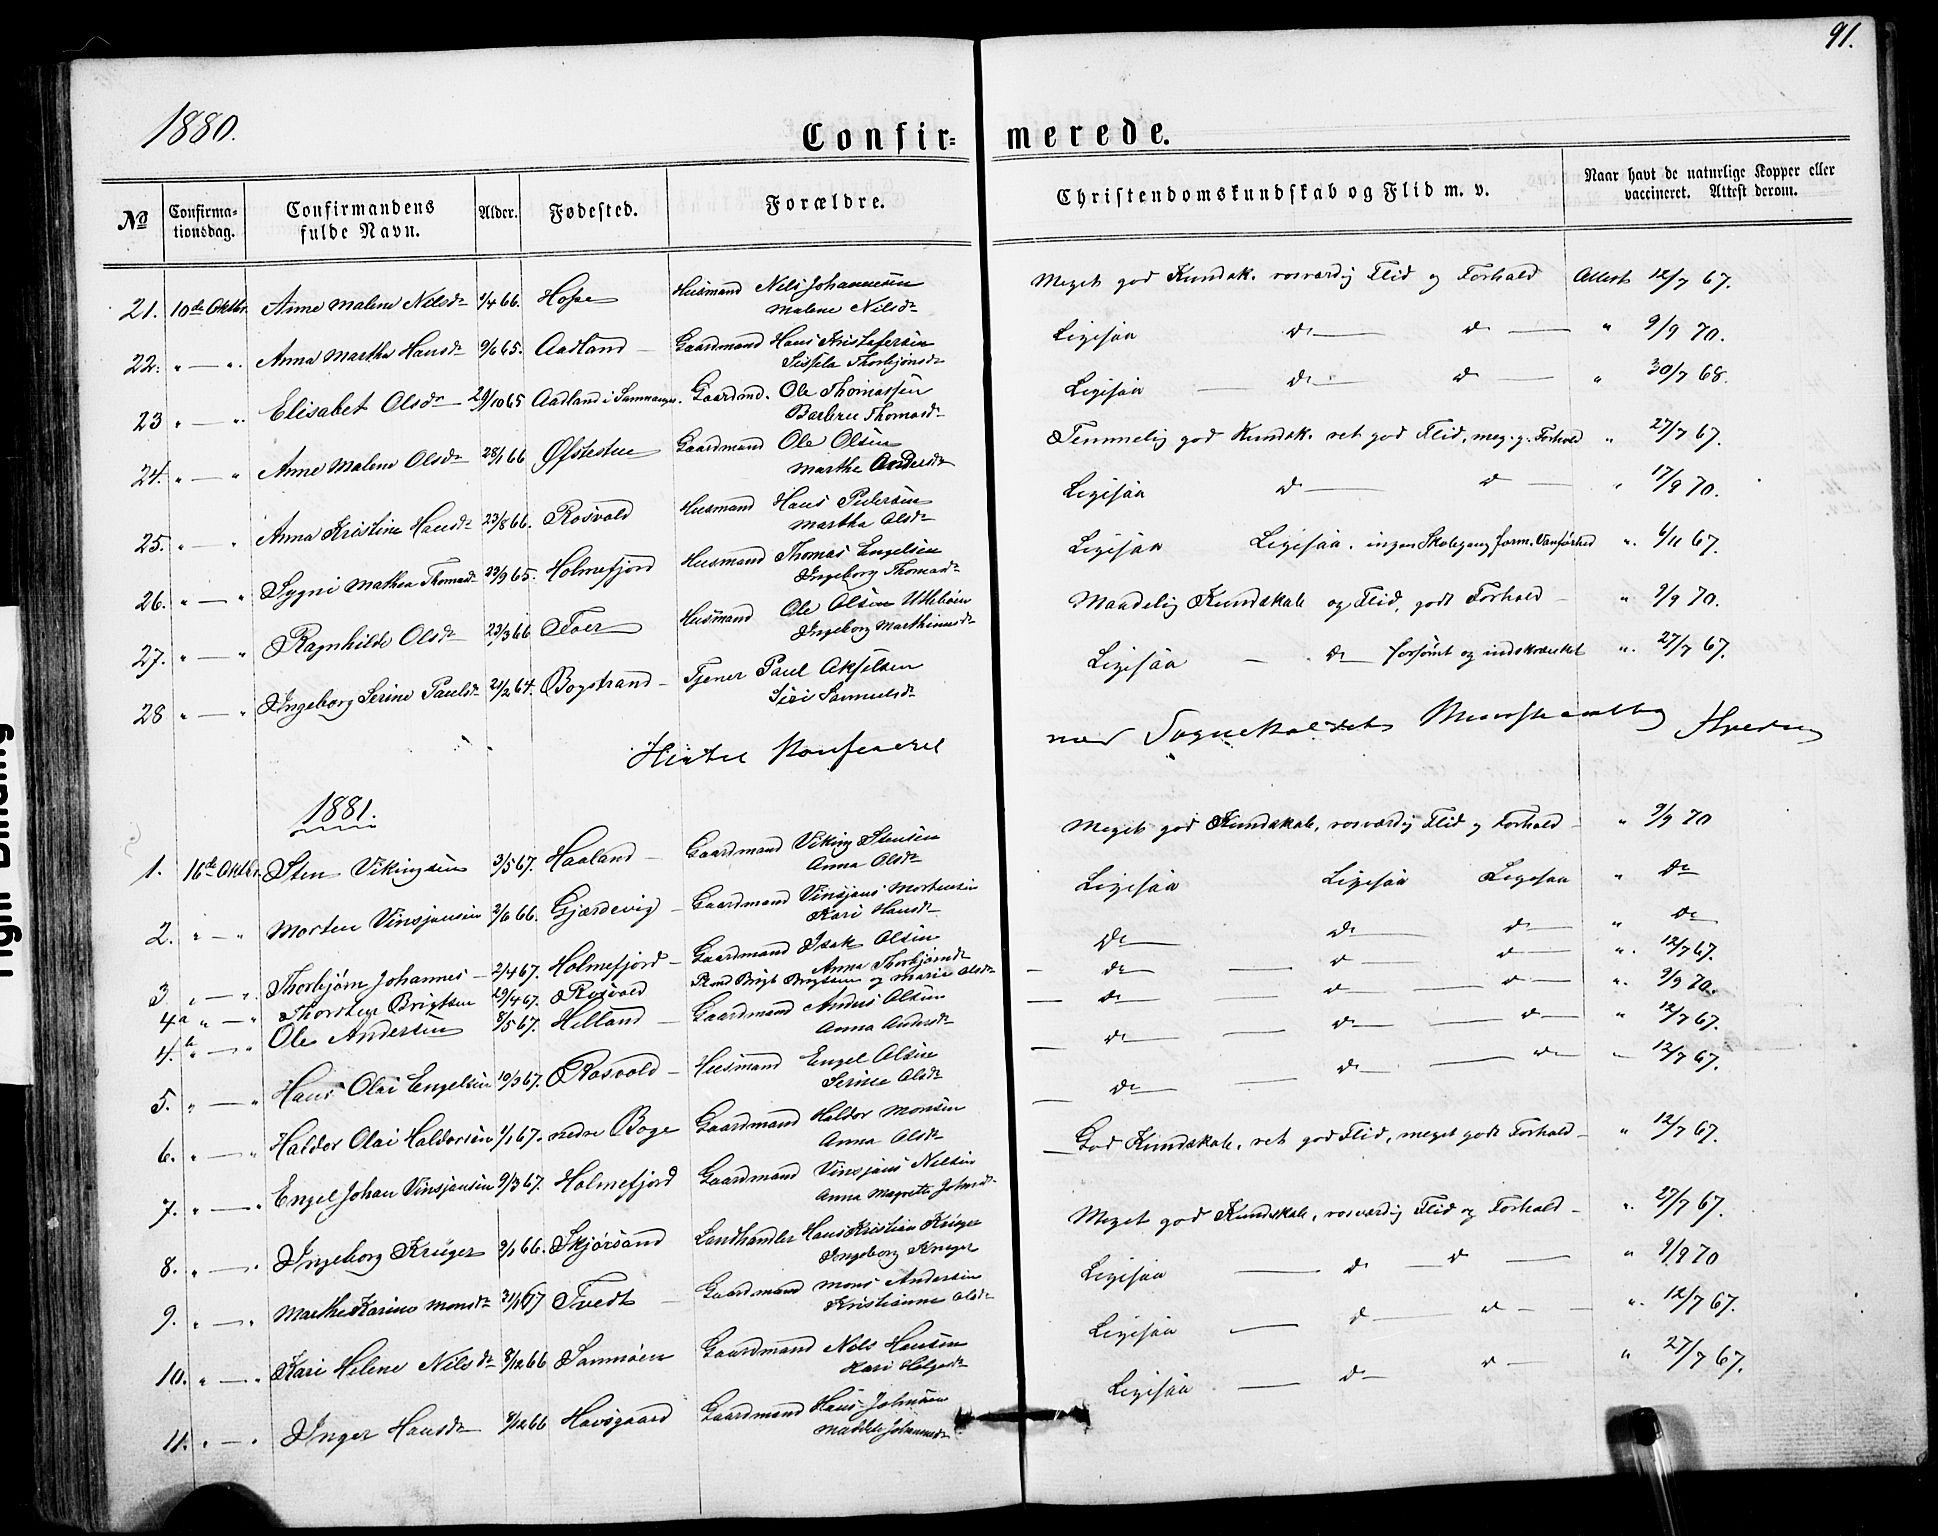 91.
1880.
Confir= merede.
No Confirma-tionsdag. Confirmandens fulde Navn. Alder. Fødested. Forældre. Christendomskundskab og Flid m. v. Naar havt de naturlige Kopper eller vaccineret. Attest derom.
21. 10de Oktbr. Anne Malene Nilsdr 1/4 66. Hope Husmand Nils Johannesen Malene Nilsdr Meget god Kundsk. rosværdig Flid og Forhold Attest 12/7 67.
22. " — " Anna Martha Hansdr 9/6 65. Aadland — Gaardmand Hans Kristofersen Sissela Thorbjønsdr Ligesaa do — do — " 9/9 70.
23 " — " Elisabet Olsdr 29/10 65 Aadland i Samnanger. Gaardmd. Ole Thomassen Barbru Thomasdr Ligesaa — do — do — " 30/7 68.
24. " — " Anne Malene Olsdr 28/1 66 Øfstestue Gaardmand Ole Olsen Marthe Andersdr Temmelig god Kundsk. ret god Flid, meg. g. Forhold " 27/7 67.
25. " — " Anna Kristine Hansdr 23/8 66. Rosvold Husmand Hans Pedersen Martha Olsdr Ligesaa do — do — " 17/9 70.
26. " — " Sygni Mathea Thomasdr 29/9 65. Holmefjord Husmand Thomas Engelsen Ingeborg Thomasdr Ligesaa Ligesaa. ingen Skolegang form. Vanførhed " 6/11 67.
27. " — " Ragnhilde Olsdr 23/3 66 Toer Husmand Ole Olsen Ingeborg Marthinusdr Maadelig Kundskab og Flid, godt Forhold — " 9/9 70.
28 " — " Ingeborg Serine Paulsdr 21/2 64. Bogstrand — Tjener Paul Akselsen Siri Samuelsdr Ligesaa — do — forsømt og indskrænket " 27/7 67.
Hertil Konfereret med Sognekaldets
1881.
1. 16de Oktbr. Sten Vikingsen 3/5 67. Haaland — Gaardmand Viking Stensen Anna Olsdr Meget god Kundskab, rosværdig Flid og Forhold — " 9/9 70
2. " — " Morten Vinsjansen 2/6 66. Gjærdevig — Gaardmand Vinsjans Mortensen Kari Hansdr Ligesaa Ligesaa Ligesaa " do
3 " — " Thorbjørn Johannes — 2/4 67. Holmefjord — Gaardmand Isak Olsen Anna Thorbjørnsdr do — do — do — " do
4a " — " Thorsten Brigtsen 29/4 67. Rosvold Brigt Brigtsen og Marie Olsdr — do — do — do — " 12/7 67.
4.b " — " Ole Andersen 8/5 67. Helland — Gaardmand Anders Olsen Anna Andersdr — do — do — do — " 9/9 70.
5. " — " Hans Olai Engelsen 10/3 67. Rosvold — Husmand Engel Olsen Serine Olsdr — do — do — do — " 12/7 67.
6. " — " Haldor Olai Haldorsen 1/1 67. nedre Boge Gaardmand Haldor Monsen Anna Olsdr — do — do — do — " 12/7 67.
7. " — " Engel Johan Vinsjansen 9/3 67. Holmefjord Gaardmand Vinsjans Nilsen Anna Magrete Johnsdr God Kundskab, ret god Flid, meget godt Forhold — " 12/7 67.
8. " — " Ingeborg Krüger 9/1 66. Skjørsand Landhandler Hans Kristian Krüger Ingeborg Krüger Meget god Kundskab, rosværdig Flid og Forhold — " 27/7 67.
9. " — " Marthe Karine Monsdr 31/1 67 Tvedt — Gaardmand Mons Andersen Kristianne Olsdr Ligesaa — do — do — " 9/9 70
10. " — " Kari Helene Nilsdr 8/12 66 Samnøen Gaardmand Nils Hansen Kari Helgesdr Ligesaa — do — do — " 12/7 67.
11. " — " Inger Hansdr 9/12 66 Havsgaard Gaardmand Hans Johnsen Johannesdr Ligesaa — do — do — " 27/7 67.